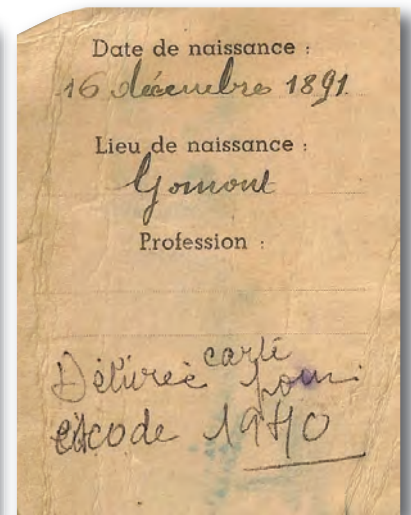 Date de naissance :
16 décembre 1891.
Lieu de naissance :
Gomont
Profession :
Délivrée carte pour
exode 1940